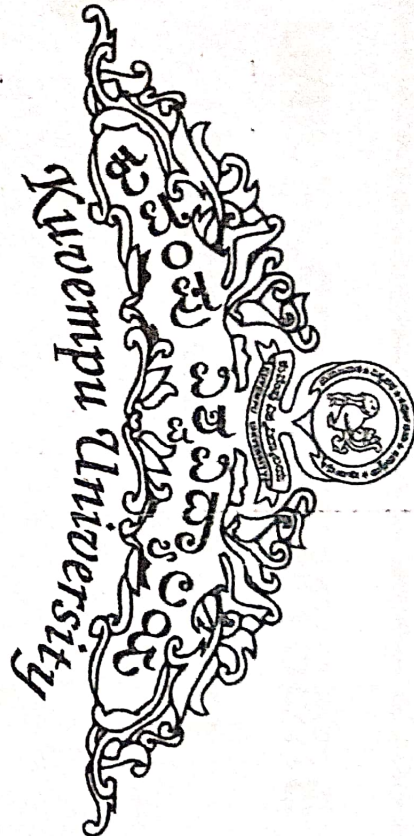 ಕುವೆಂಪು ವಿಶ್ವವಿದ್ಯಾಲಯ
Kuvempu University